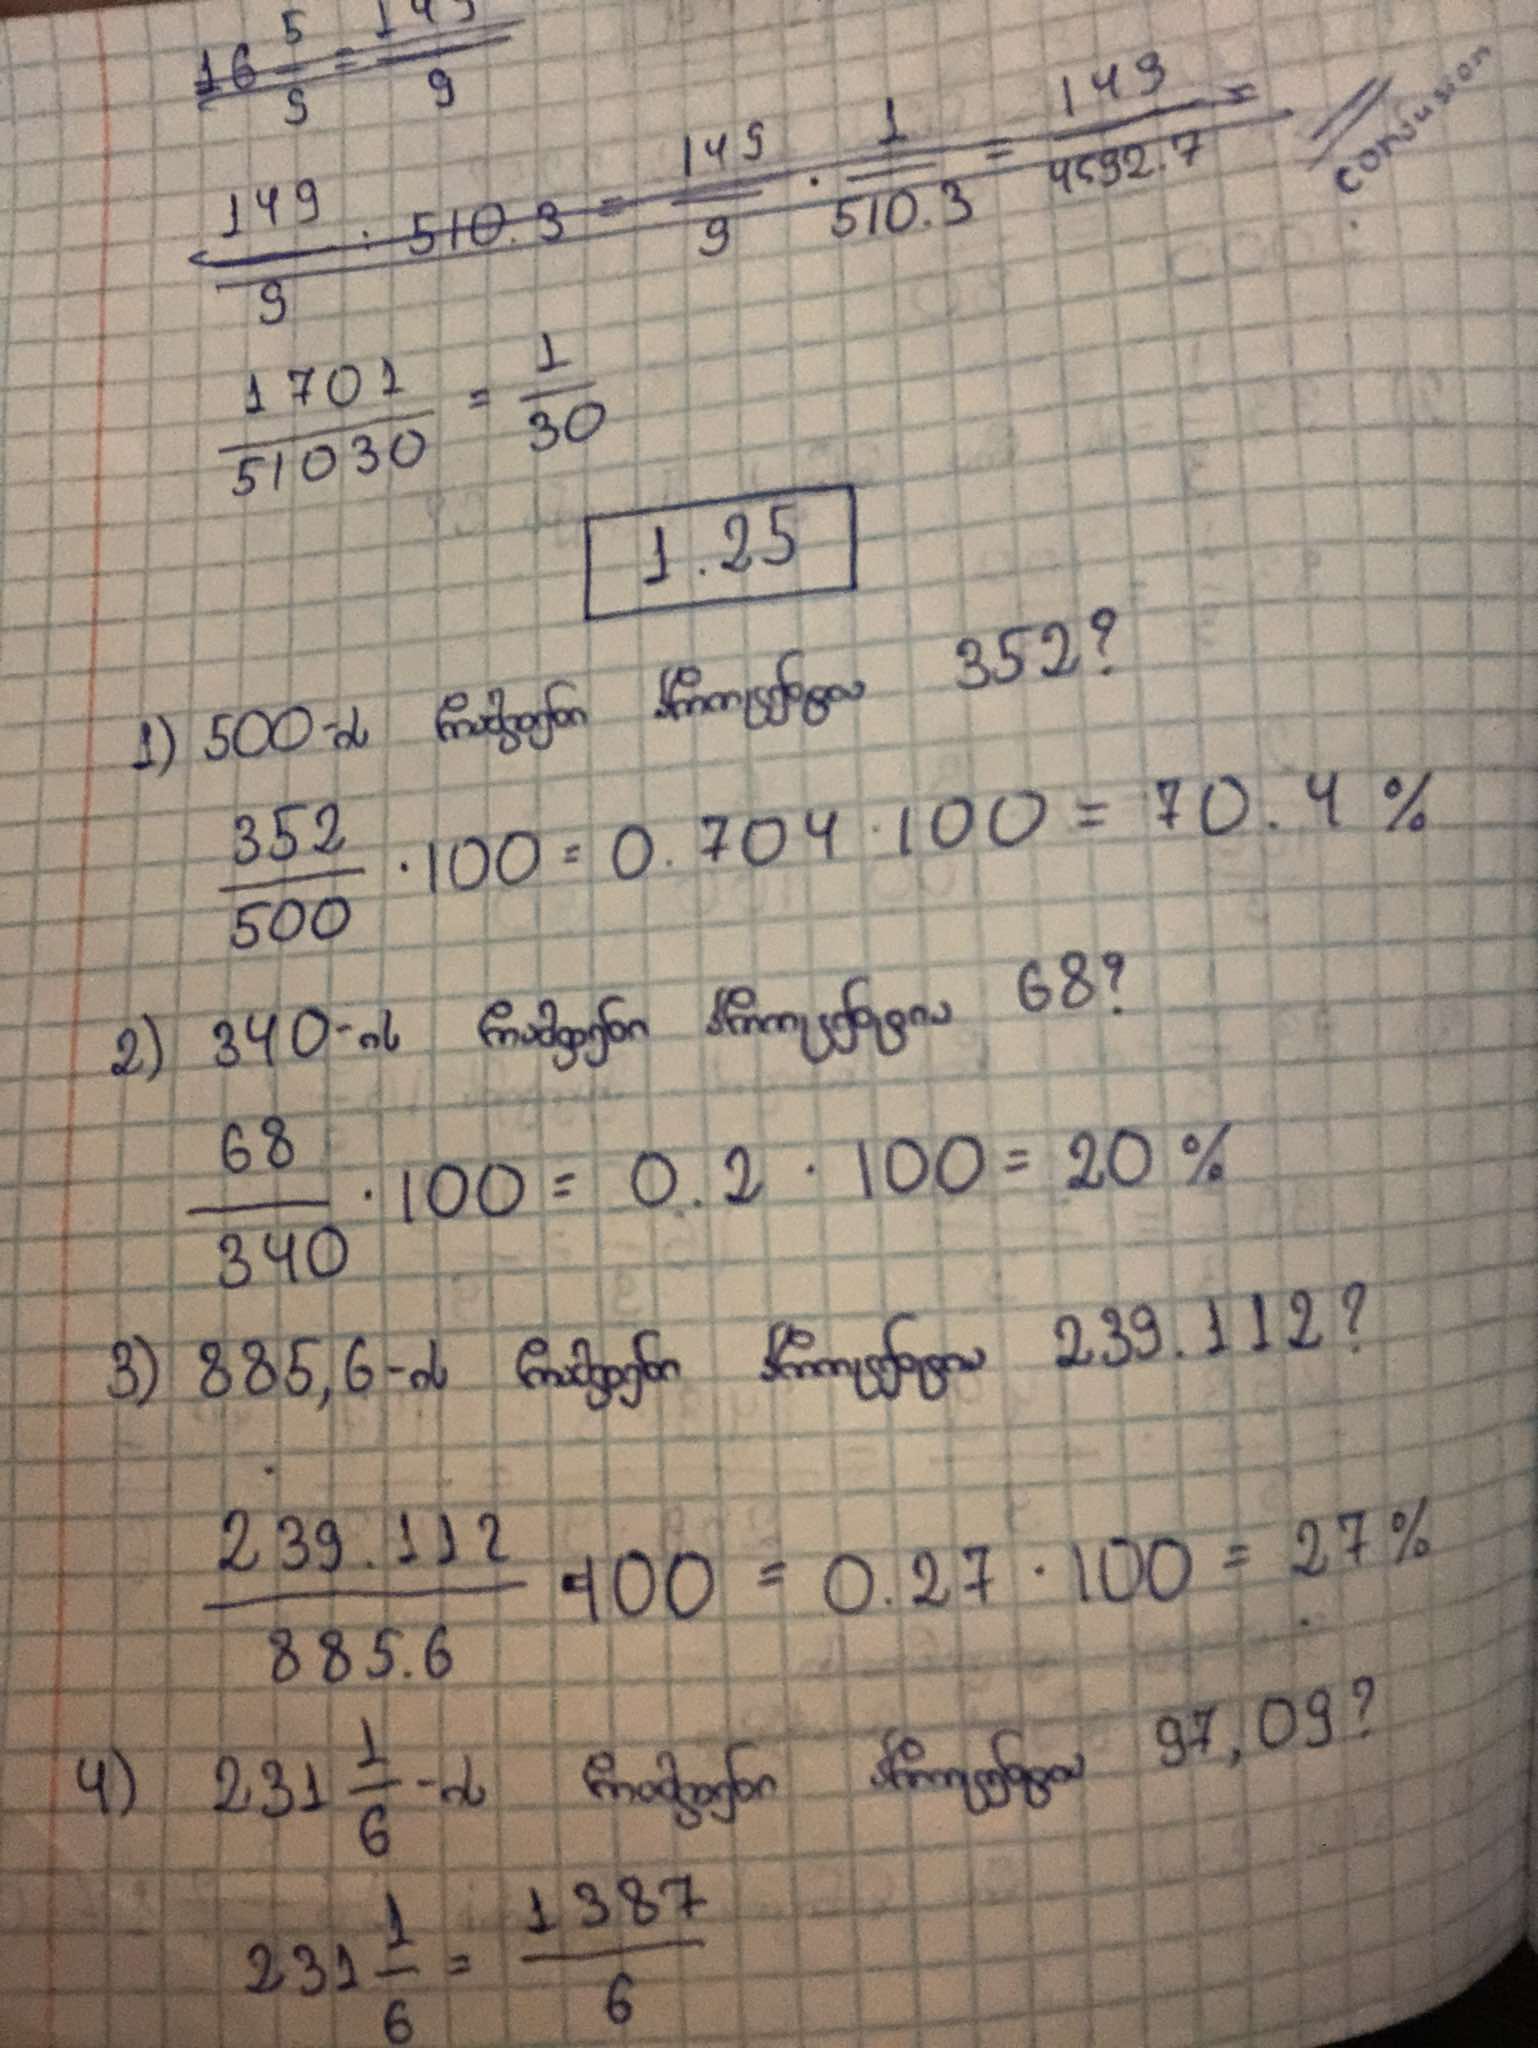 16 5/9 = 149/9
149/9 : 510.3 = 149/9 · 1/510.3 = 149/4592.7 =
confusion
1701/51030 = 1/30
1.25
1) 500-ს რამდენი პროცენტია 352?
352/500 · 100 = 0.704 · 100 = 70.4 %
2) 340-ის რამდენი პროცენტია 68?
68/340 · 100 = 0.2 · 100 = 20 %
3) 885,6-ს რამდენი პროცენტია 239.112?
239.112/885.6 · 100 = 0.27 · 100 = 27 %
4) 231 1/6-ს რამდენი პროცენტია 97,09?
231 1/6 = 1387/6